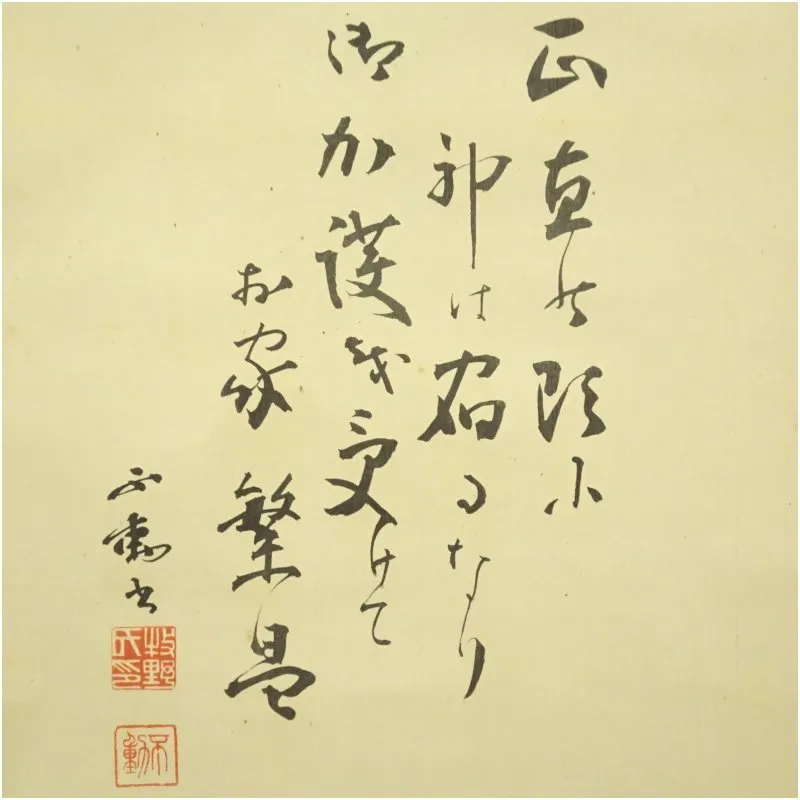 正直の頭に
神は宿るなり
御加護を受けて
お家繁昌
不動書
牧野
不動